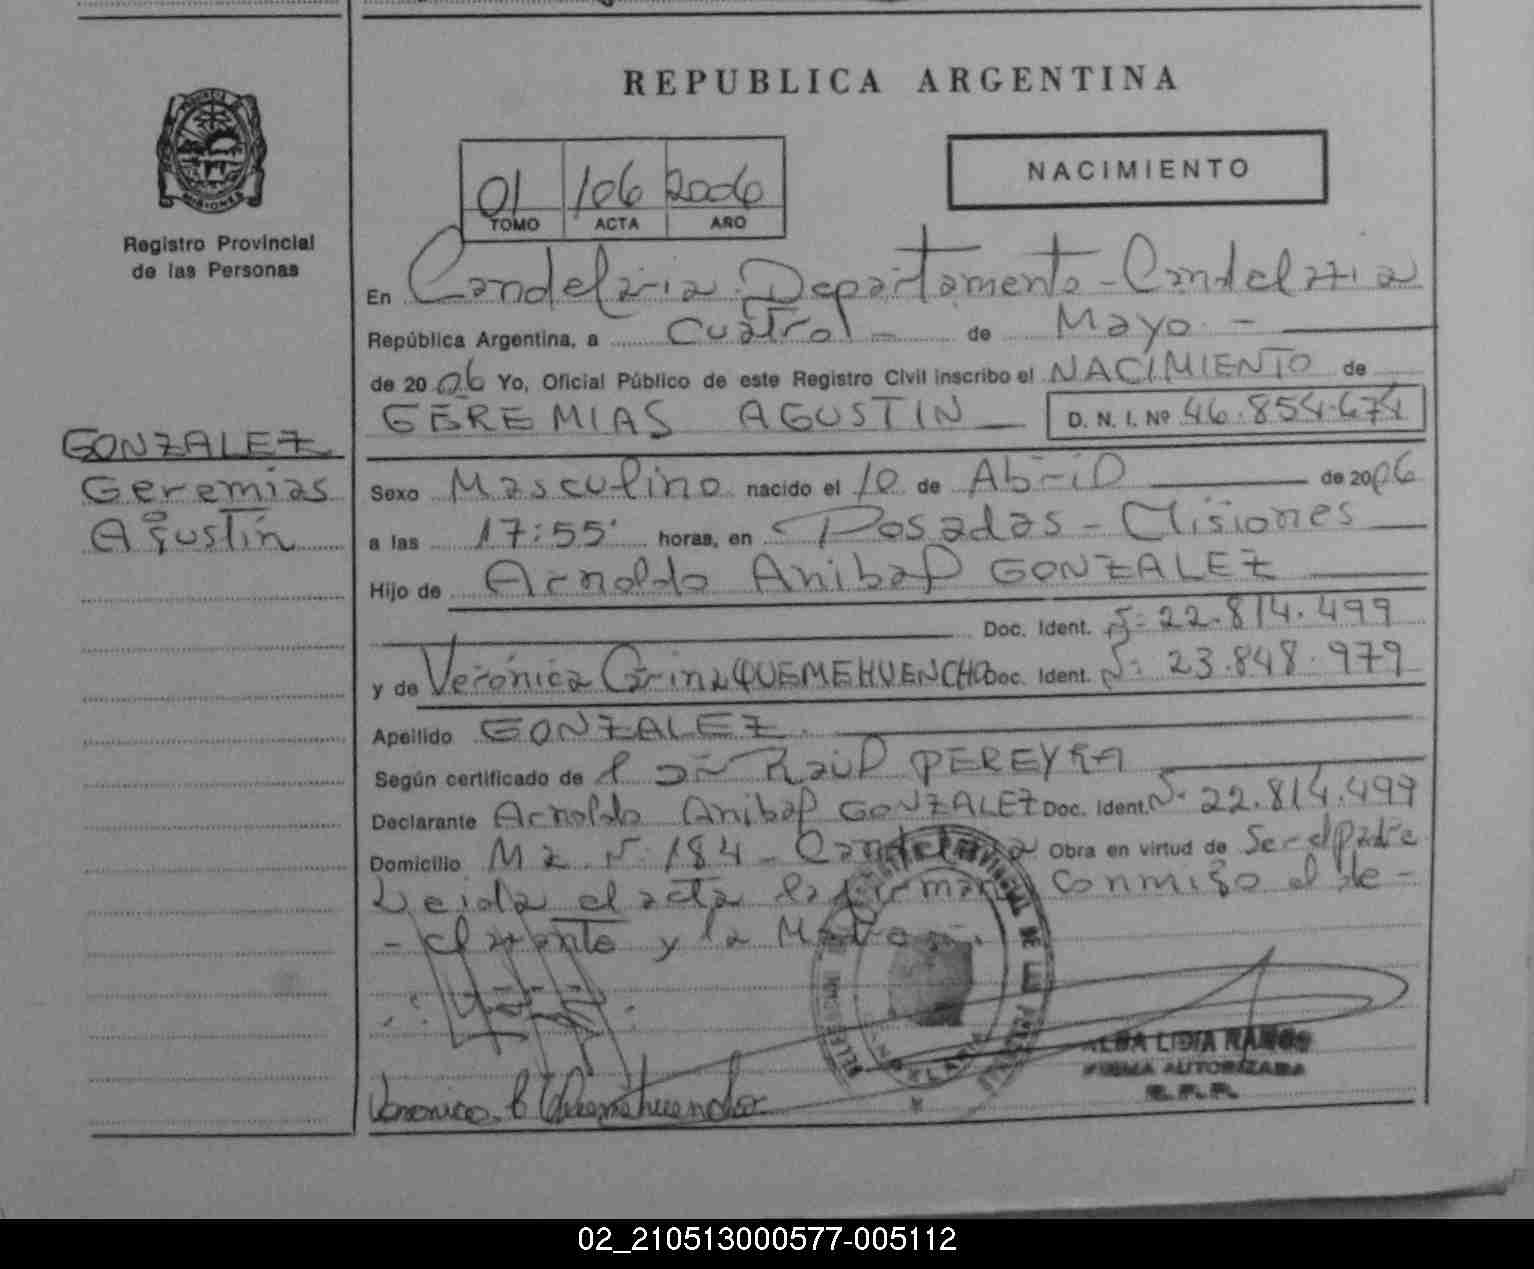 REPUBLICA ARGENTINA
PROVINCIA DE
MISIONES
Registro Provincial
de las Personas
01 106 2006
TOMO ACTA AÑO
NACIMIENTO
En Candelaria Departamento - Candelaria
República Argentina, a cuatro - de Mayo -
de 2006 Yo, Oficial Público de este Registro Civil inscribo el NACIMIENTO de
GEREMIAS AGUSTIN D. N. I. Nº 46.854.674
GONZALEZ
Geremias
Agustin
Sexo Masculino nacido el 10 de Abril de 2006
a las 17:55' horas, en Posadas - Misiones
Hijo de Arnoldo Anibal GONZALEZ
Doc. Ident. Nº 22.814.499
y de Verónica Carina QUEMEHUENCHO Doc. Ident. Nº 23.848.979
Apellido GONZALEZ
Según certificado de Raúl PEREYRA
Declarante Arnoldo Anibal GONZALEZ Doc. Ident. Nº 22.814.499
Domicilio Mz Nº 184 - Candelaria Obra en virtud de Ser el padre
Leida el acta la firman conmigo el de-
-clarante y la Madre.
Veronica C Quemehuencho
ALBA LIDIA RAMOS
FIRMA AUTORIZADA
R.P.P.
02_210513000577-005112